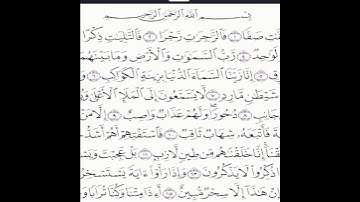 بِسْمِ ٱللَّهِ ٱلرَّحْمَٰنِ ٱلرَّحِيمِ
تِ صَفًّا ١ فَٱلزَّٰجِرَٰتِ زَجْرًا ٢ فَٱلتَّٰلِيَٰتِ ذِكْرًا
لَوَٰحِدٌ ٤ رَّبُّ ٱلسَّمَٰوَٰتِ وَٱلْأَرْضِ وَمَا بَيْنَهُمَا
قِ ٥ إِنَّا زَيَّنَّا ٱلسَّمَآءَ ٱلدُّنْيَا بِزِينَةٍ ٱلْكَوَاكِبِ ٦
شَيْطَٰنٍ مَّارِدٍ ٧ لَّا يَسَّمَّعُونَ إِلَى ٱلْمَلَإِ ٱلْأَعْلَىٰ وَ
جَانِبٍ ٨ دُحُورًا وَلَهُمْ عَذَابٌ وَاصِبٌ ٩ إِلَّا مَنْ
ةَ فَأَتْبَعَهُۥ شِهَابٌ ثَاقِبٌ ١٠ فَٱسْتَفْتِهِمْ أَهُمْ أَشَدُّ
قْنَآ إِنَّا خَلَقْنَٰهُم مِّن طِينٍ لَّازِبٍ ١١ بَلْ عَجِبْتَ وَيَسْ
ذُكِّرُوا۟ لَا يَذْكُرُونَ ١٣ وَإِذَا رَأَوْا۟ ءَايَةً يَسْتَسْخِرُ
إِنْ هَٰذَآ إِلَّا سِحْرٌ مُّبِينٌ ١٥ أَءِذَا مِتْنَا وَكُنَّا تُرَابًا وَ